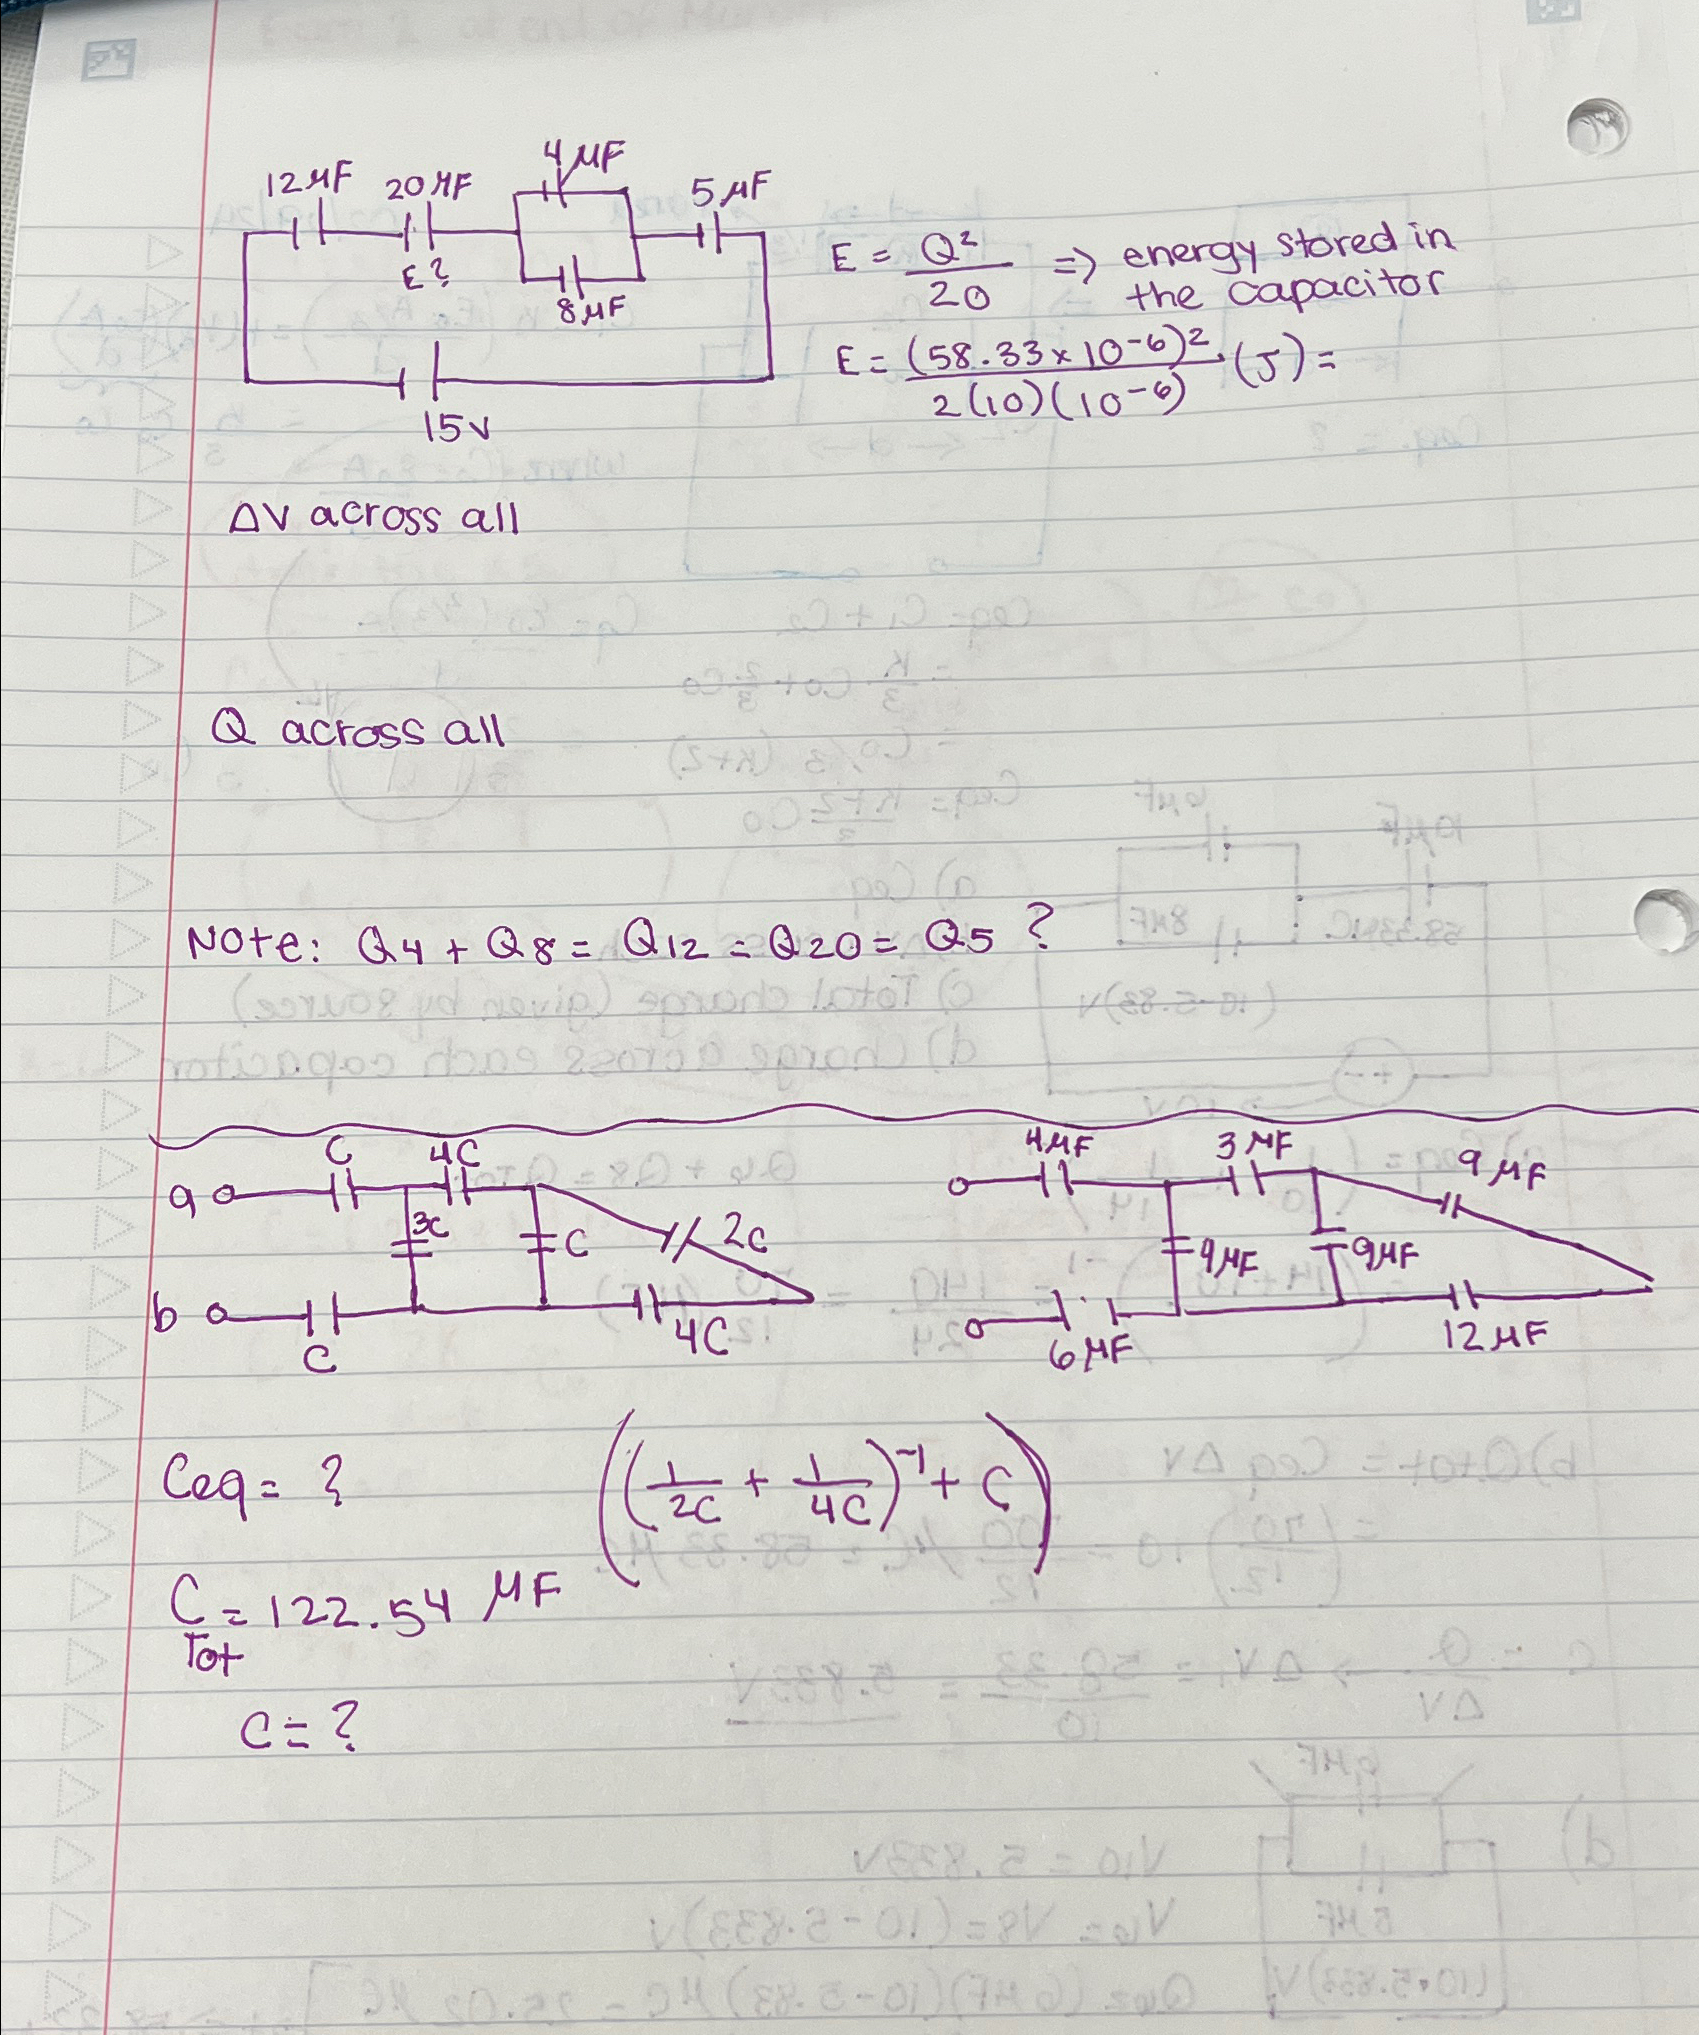 12 μF 20 μF 4 μF 5 μF
E?
8 μF
15 v
E = Q² / 20 => energy stored in the capacitor
E = (58.33 x 10⁻⁶)² / 2(10)(10⁻⁶) (J) =
ΔV across all
Q across all
Note: Q4 + Q8 = Q12 = Q20 = Q5 ?
a C 4C 3C C 2C
b C 4C
4 μF 3 μF 9 μF
9 μF 9 μF
6 μF 12 μF
Ceq = ? ((1/2C + 1/4C)⁻¹ + C)
C Tot = 122.54 μF
C = ?